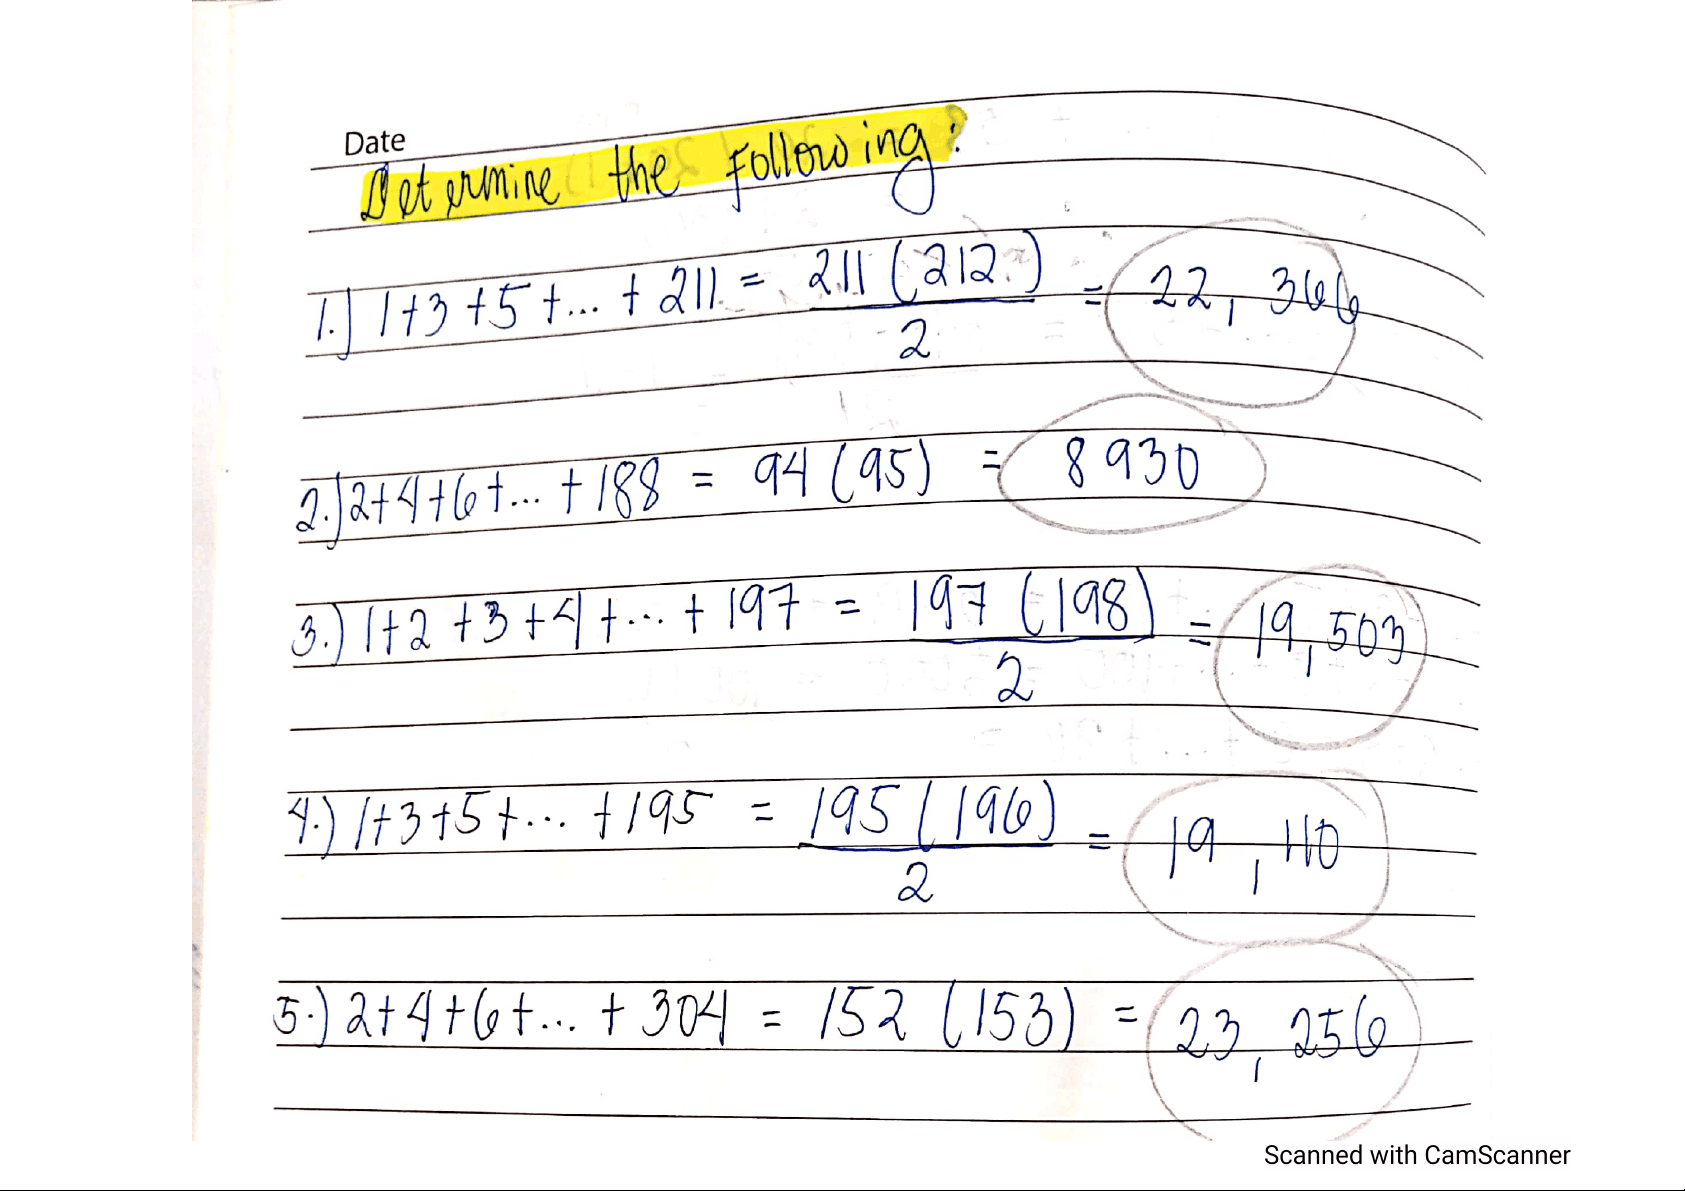 Date
Determine the following:
1.) 1+3+5+... + 211 = 211 (212) / 2 = 22, 366
2.) 2+4+6+... + 188 = 94 (95) = 8930
3.) 1+2+3+4+... + 197 = 197 (198) / 2 = 19,503
4.) 1+3+5+... +195 = 195 (196) / 2 = 19, 110
5.) 2+4+6+... + 304 = 152 (153) = 23, 256
Scanned with CamScanner